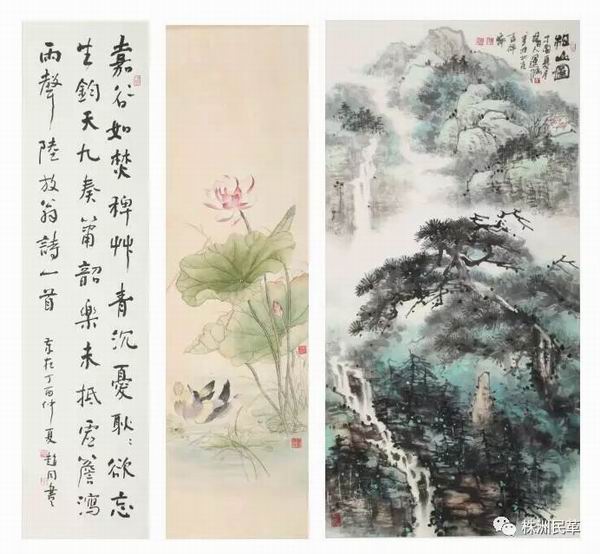 嘉谷如焚稗艸青沉憂耿々欲忘
生鈞天九奏簫韶樂未抵虛簷瀉
雨聲 陸放翁詩一首 歲在丁酉仲夏
祖山圖
株洲民革